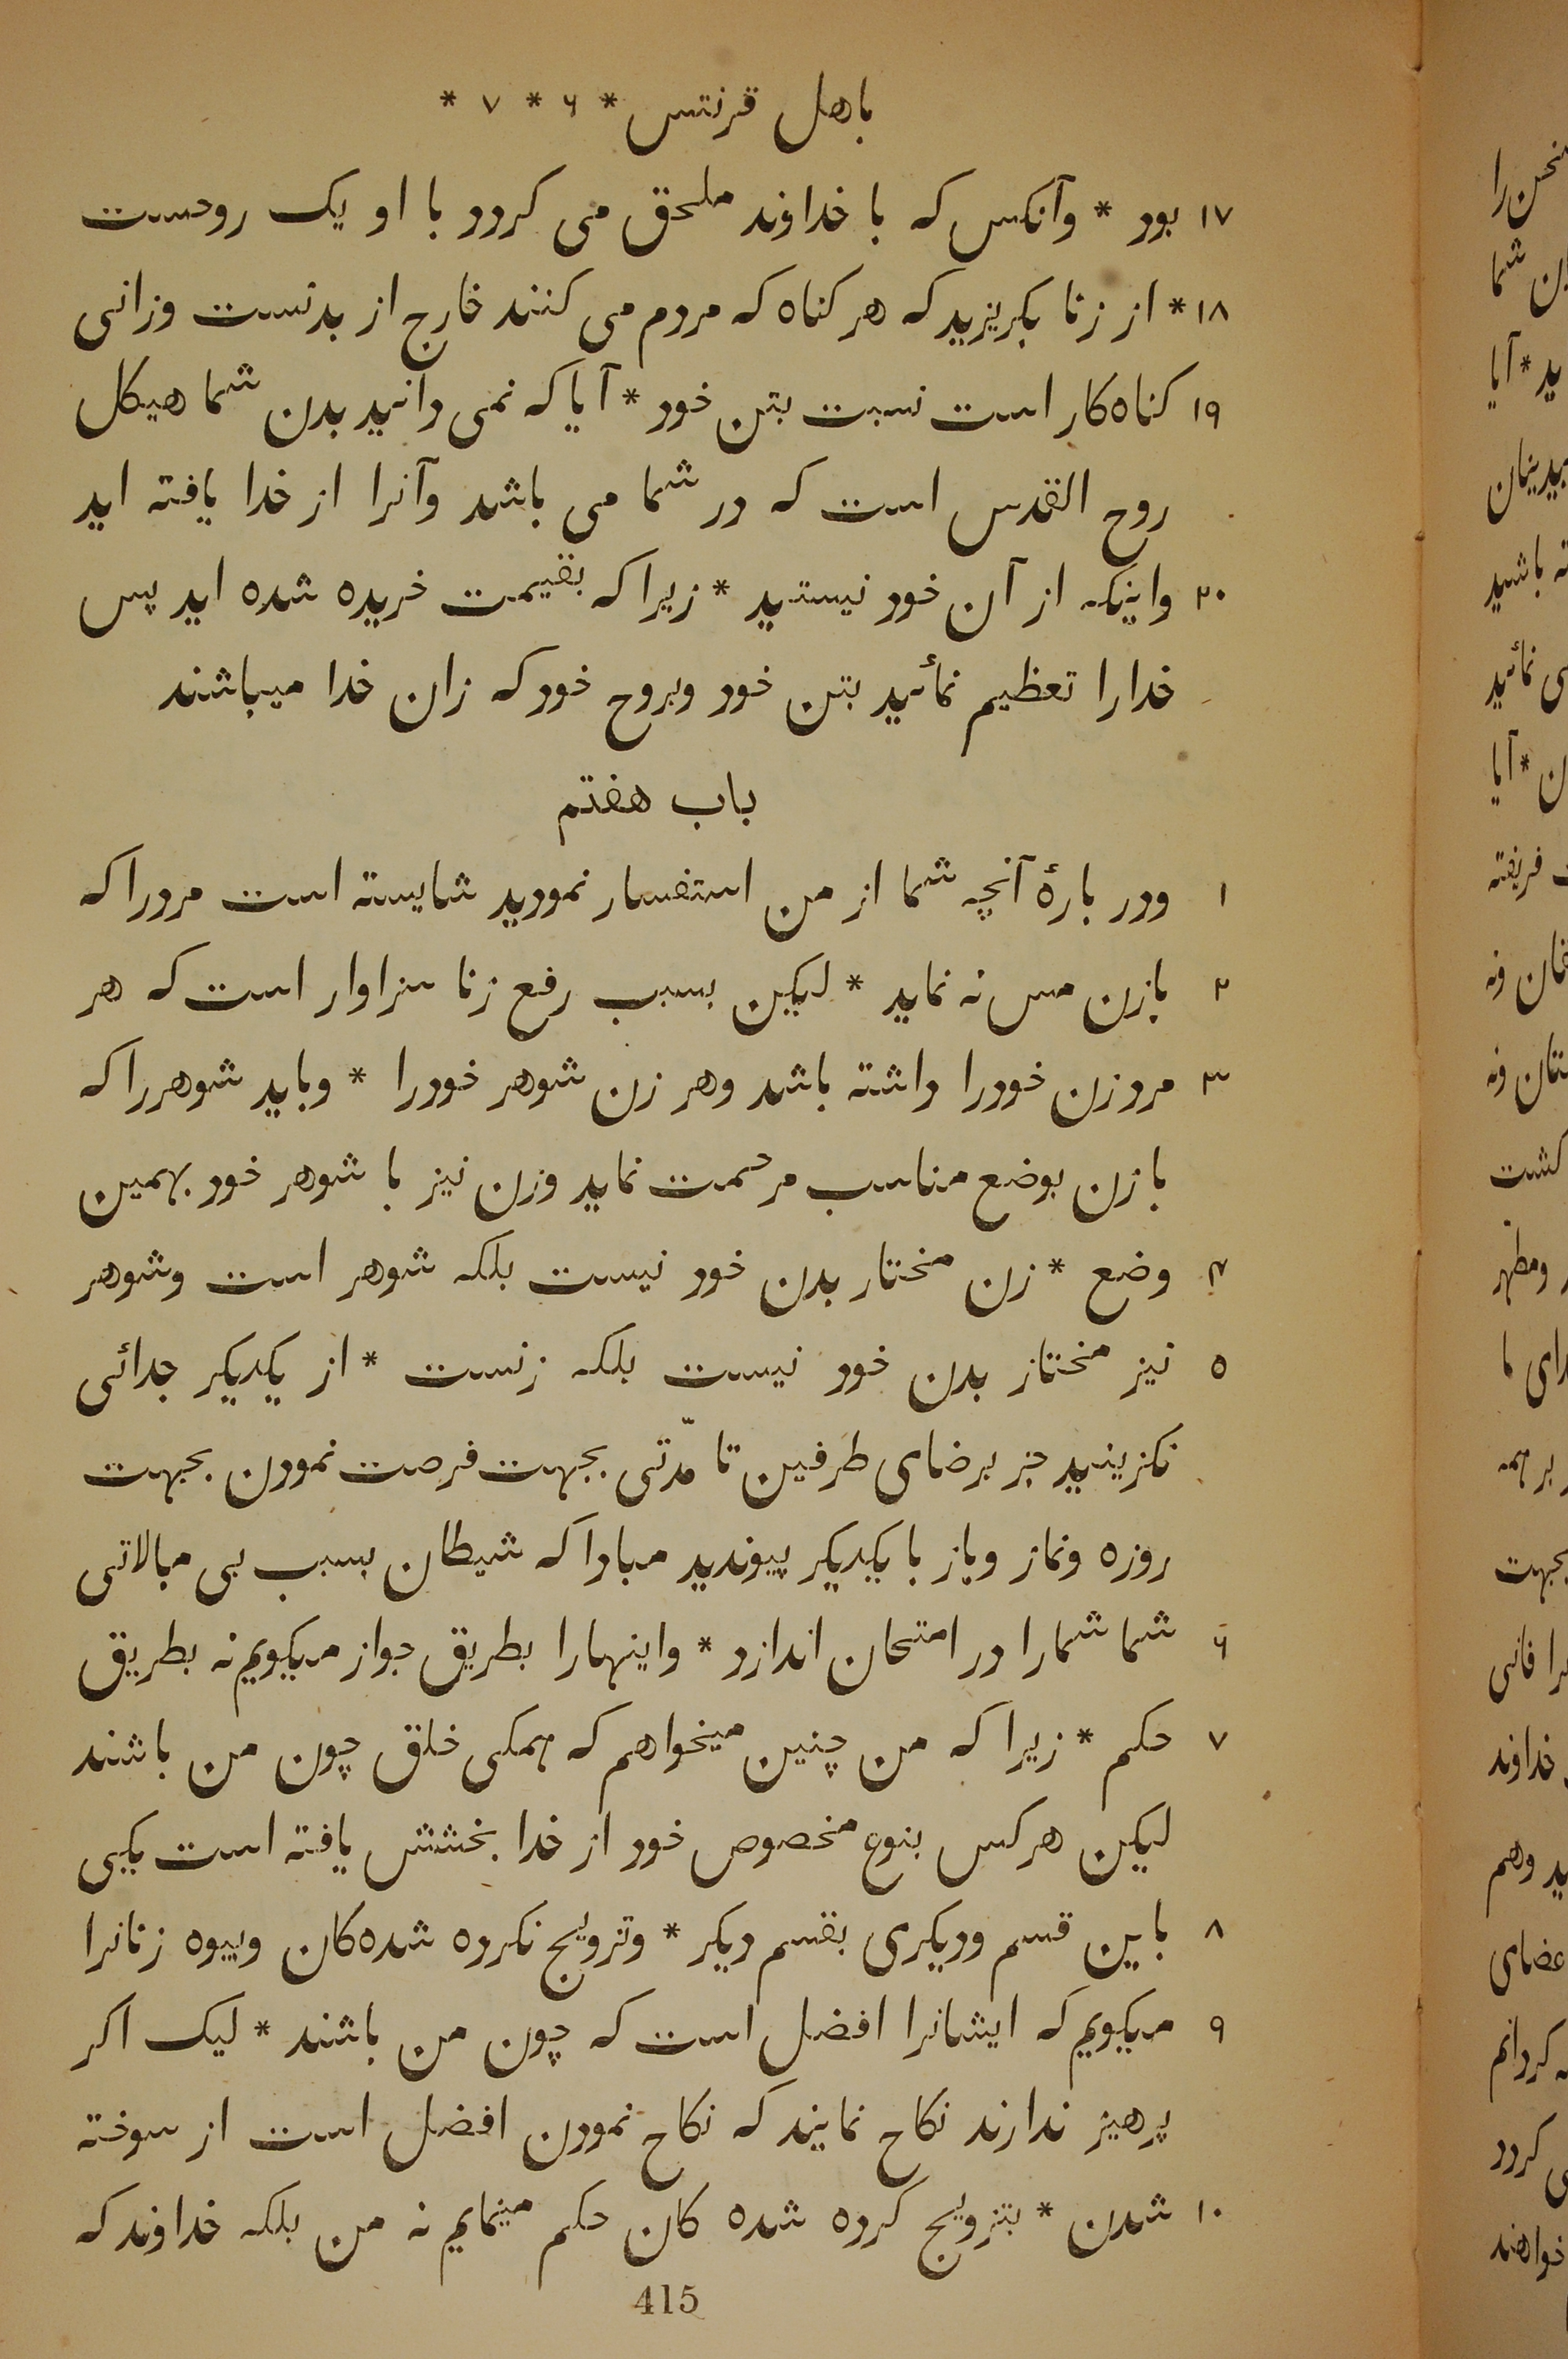 باهل قرنتس * ۶ * ۷ *
۱۷ بود * وآنکس که با خداوند ملحق می کردد با او یک روحست
۱۸ * از زنا بکریزید که هر کناه که مردم می کنند خارج از بدنست وزانی
۱۹ کناه کار است نسبت بتن خود * آیا که نمی دانید بدن شما هیکل
روح القدس است که در شما می باشد وآنرا از خدا یافته اید
۲۰ واینکه از آن خود نیستید * زیرا که بقیمت خریده شده اید پس
خدارا تعظیم نمائید بتن خود وبروح خود که زان خدا میباشند
باب هفتم
۱ ودر بارهٔ آنچه شما از من استفسار نمودید شایسته است مردرا که
۲ بازن مس نه نماید * لیکن بسبب رفع زنا سزاوار است که هر
۳ مرد زن خودرا داشته باشد وهر زن شوهر خودرا * وباید شوهررا که
با زن بوضع مناسب مرحمت نماید وزن نیز با شوهر خود بهمین
۴ وضع * زن مختار بدن خود نیست بلکه شوهر است وشوهر
۵ نیز مختار بدن خود نیست بلکه زنست * از یکدیکر جدائی
نکزینید جز برضای طرفین تا مدّتی بجهت فرصت نمودن بجهت
روزه ونماز وباز با یکدیکر پیوندید مبادا که شیطان بسبب بی مبالاتی
۶ شما شمارا در امتحان اندازد * واینهارا بطریق جواز میکویم نه بطریق
۷ حکم * زیرا که من چنین میخواهم که همکی خلق چون من باشند
لیکن هرکس بنوع مخصوص خود از خدا بخشش یافته است یکی
۸ باین قسم ودیکری بقسم دیکر * وتزویج نکرده شده کان وبیوه زنانرا
۹ میکویم که ایشانرا افضل است که چون من باشند * لیک اکر
پرهیز ندارند نکاح نمایند که نکاح نمودن افضل است از سوخته
۱۰ شدن * بتزویج کرده شده کان حکم مینمایم نه من بلکه خداوند که
415